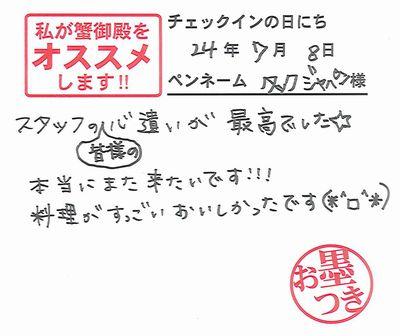 私が蟹御殿を
オススメ
します!!
チェックインの日にち
24年7月8日
ペンネーム タックジャパン様
スタッフの皆様の心遣いが最高でした☆
本当にまた来たいです!!!
料理がすっごいおいしかったです(*^ロ^*)
お墨つき